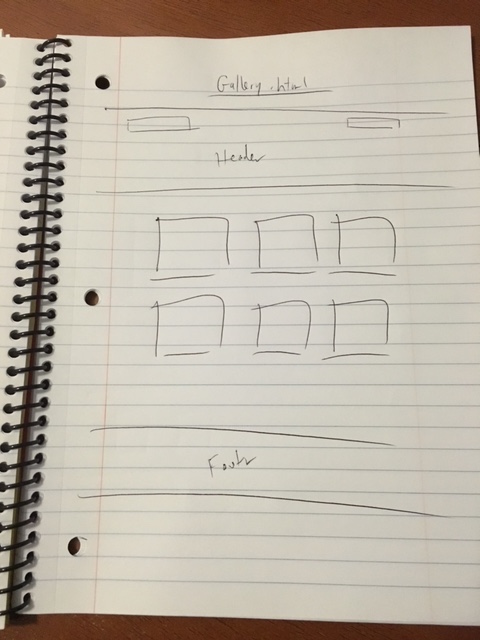 Gallery.html
Header
Footer